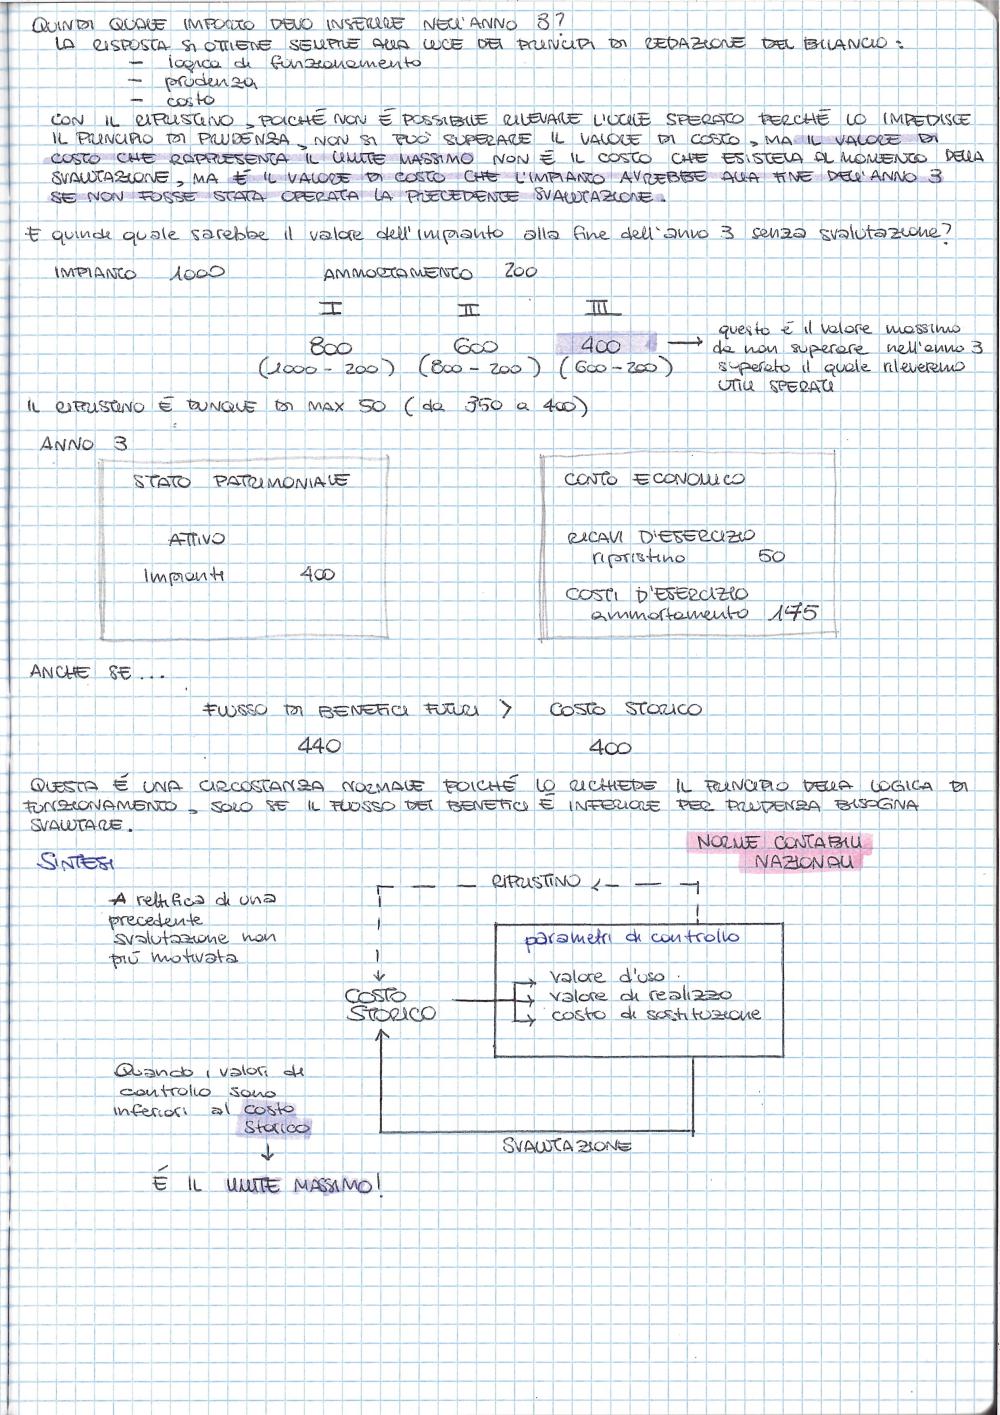 QUINDI QUALE IMPORTO DEVO INSERIRE NELL'ANNO 3?
LA RISPOSTA SI OTTIENE SEMPRE ALLA LUCE DEI PRINCIPI DI REDAZIONE DEL BILANCIO:
– logica di funzionamento
– prudenza
– costo
CON IL RIPRISTINO, POICHÉ NON É POSSIBILE RILEVARE L'UTILE SPERATO PERCHÉ LO IMPEDISCE
IL PRINCIPIO DI PRUDENZA, NON SI PUÒ SUPERARE IL VALORE DI COSTO, MA IL VALORE DI
COSTO CHE RAPPRESENTA IL LIMITE MASSIMO NON É IL COSTO CHE ESISTEVA AL MOMENTO DELLA
SVALUTAZIONE, MA É IL VALORE DI COSTO CHE L'IMPIANTO AVREBBE ALLA FINE DELL'ANNO 3
SE NON FOSSE STATA OPERATA LA PRECEDENTE SVALUTAZIONE.
E quindi quale sarebbe il valore dell'impianto alla fine dell'anno 3 senza svalutazione?
IMPIANTO 1000 AMMORTAMENTO 200
I II III
800 600 400 → questo é il valore massimo
(1000 - 200) (800 - 200) (600 - 200) da non superare nell'anno 3
superato il quale rileveremo
UTILI SPERATI
IL RIPRISTINO É DUNQUE DI MAX 50 (da 350 a 400)
ANNO 3
STATO PATRIMONIALE
ATTIVO
Impianti 400
CONTO ECONOMICO
RICAVI D'ESERCIZIO
ripristino 50
COSTI D'ESERCIZIO
ammortamento 175
ANCHE SE...
FLUSSO DI BENEFICI FUTURI > COSTO STORICO
440 400
QUESTA É UNA CIRCOSTANZA NORMALE POICHÉ LO RICHIEDE IL PRINCIPIO DELLA LOGICA DI
FUNZIONAMENTO, SOLO SE IL FLUSSO DEI BENEFICI É INFERIORE PER PRUDENZA BISOGNA
SVALUTARE.
NORME CONTABILI
NAZIONALI
SINTESI
RIPRISTINO
A rettifica di una
precedente
svalutazione non
più motivata
parametri di controllo
valore d'uso
valore di realizzo
costo di sostituzione
COSTO
STORICO
Quando i valori di
controllo sono
inferiori al costo
storico
SVALUTAZIONE
É IL LIMITE MASSIMO!